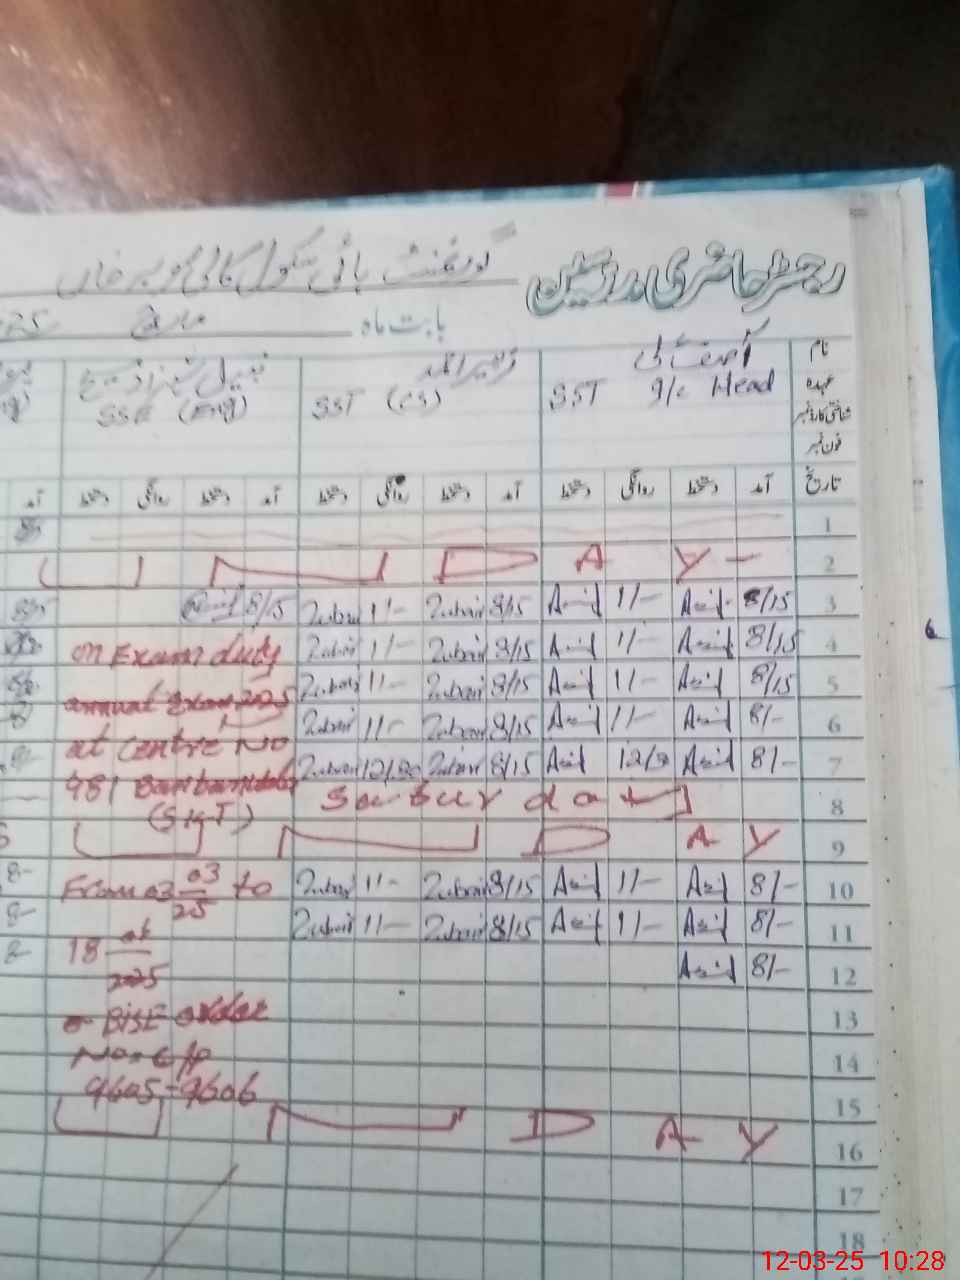 رجسٹر حاضری مدرسین گورنمنٹ ہائی سکول
بابت ماہ مارچ 25
نام آصف علی
عہدہ SST I/c Head SST (CS) SSE (Eng)
شناختی کارڈ نمبر
فون نمبر
تاریخ آمد دستخط روانگی دستخط آمد دستخط روانگی دستخط آمد دستخط روانگی دستخط آمد
1
2 S U N D A Y -
3 8/15 Asif 1/- Asif 8/15 Zubair 1/- Zubair 8/15
4 8/15 Asif 1/- Asif 8/15 Zubair 1/- Zubair
5 8/15 Asif 1/- Asif 8/15 Zubair 1/- Zubair
6 8/- Asif 1/- Asif 8/15 Zubair 1/- Zubair
7 8/- Asif 12/30 Asif 8/15 Zubair 12/30 Zubair
8 Saturday
9 S U N D A Y
10 8/- Asif 1/- Asif 8/15 Zubair 1/- Zubair
11 8/- Asif 1/- Asif 8/15 Zubair 1/- Zubair
12 8/- Asif
13
14
15
16 S U N D A Y
17
18
on Exam duty
annual Exam 2025
at Centre No
481
From 03 03/25 to
18 /2025
BISE order
No.
9605-9606
6
12-03-25 10:28